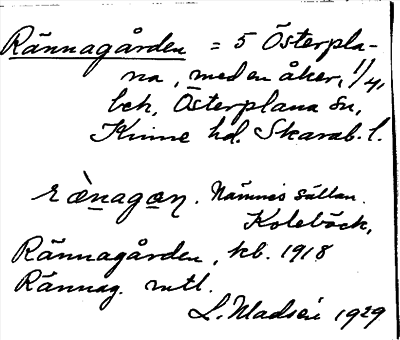 Rännagården = 5 Österpla-
na, med en åker, 1/4,
beb, Österplana sn,
Kinne hd. Skarab. l.
rænagan. Nämnes sällan.
Kolebäck,
Rännagården, kb. 1918
Rännag. mtl.
L. Madsén 1929